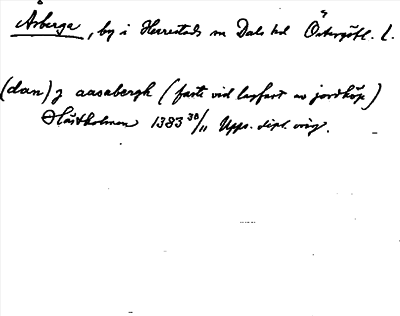 Åsberga, by i Herrestads sn Dals hd Östergötl. l.
(dan) j aasabergh (faste vid lagfart av jordköp)
Hästholmen 1383 30/11 Upps. dipl. orig.